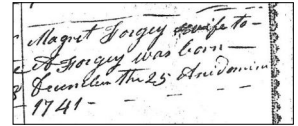 Magret Forgey wife to -
A Forgey was born -
Decembr the 25 Anidomini
1741 -